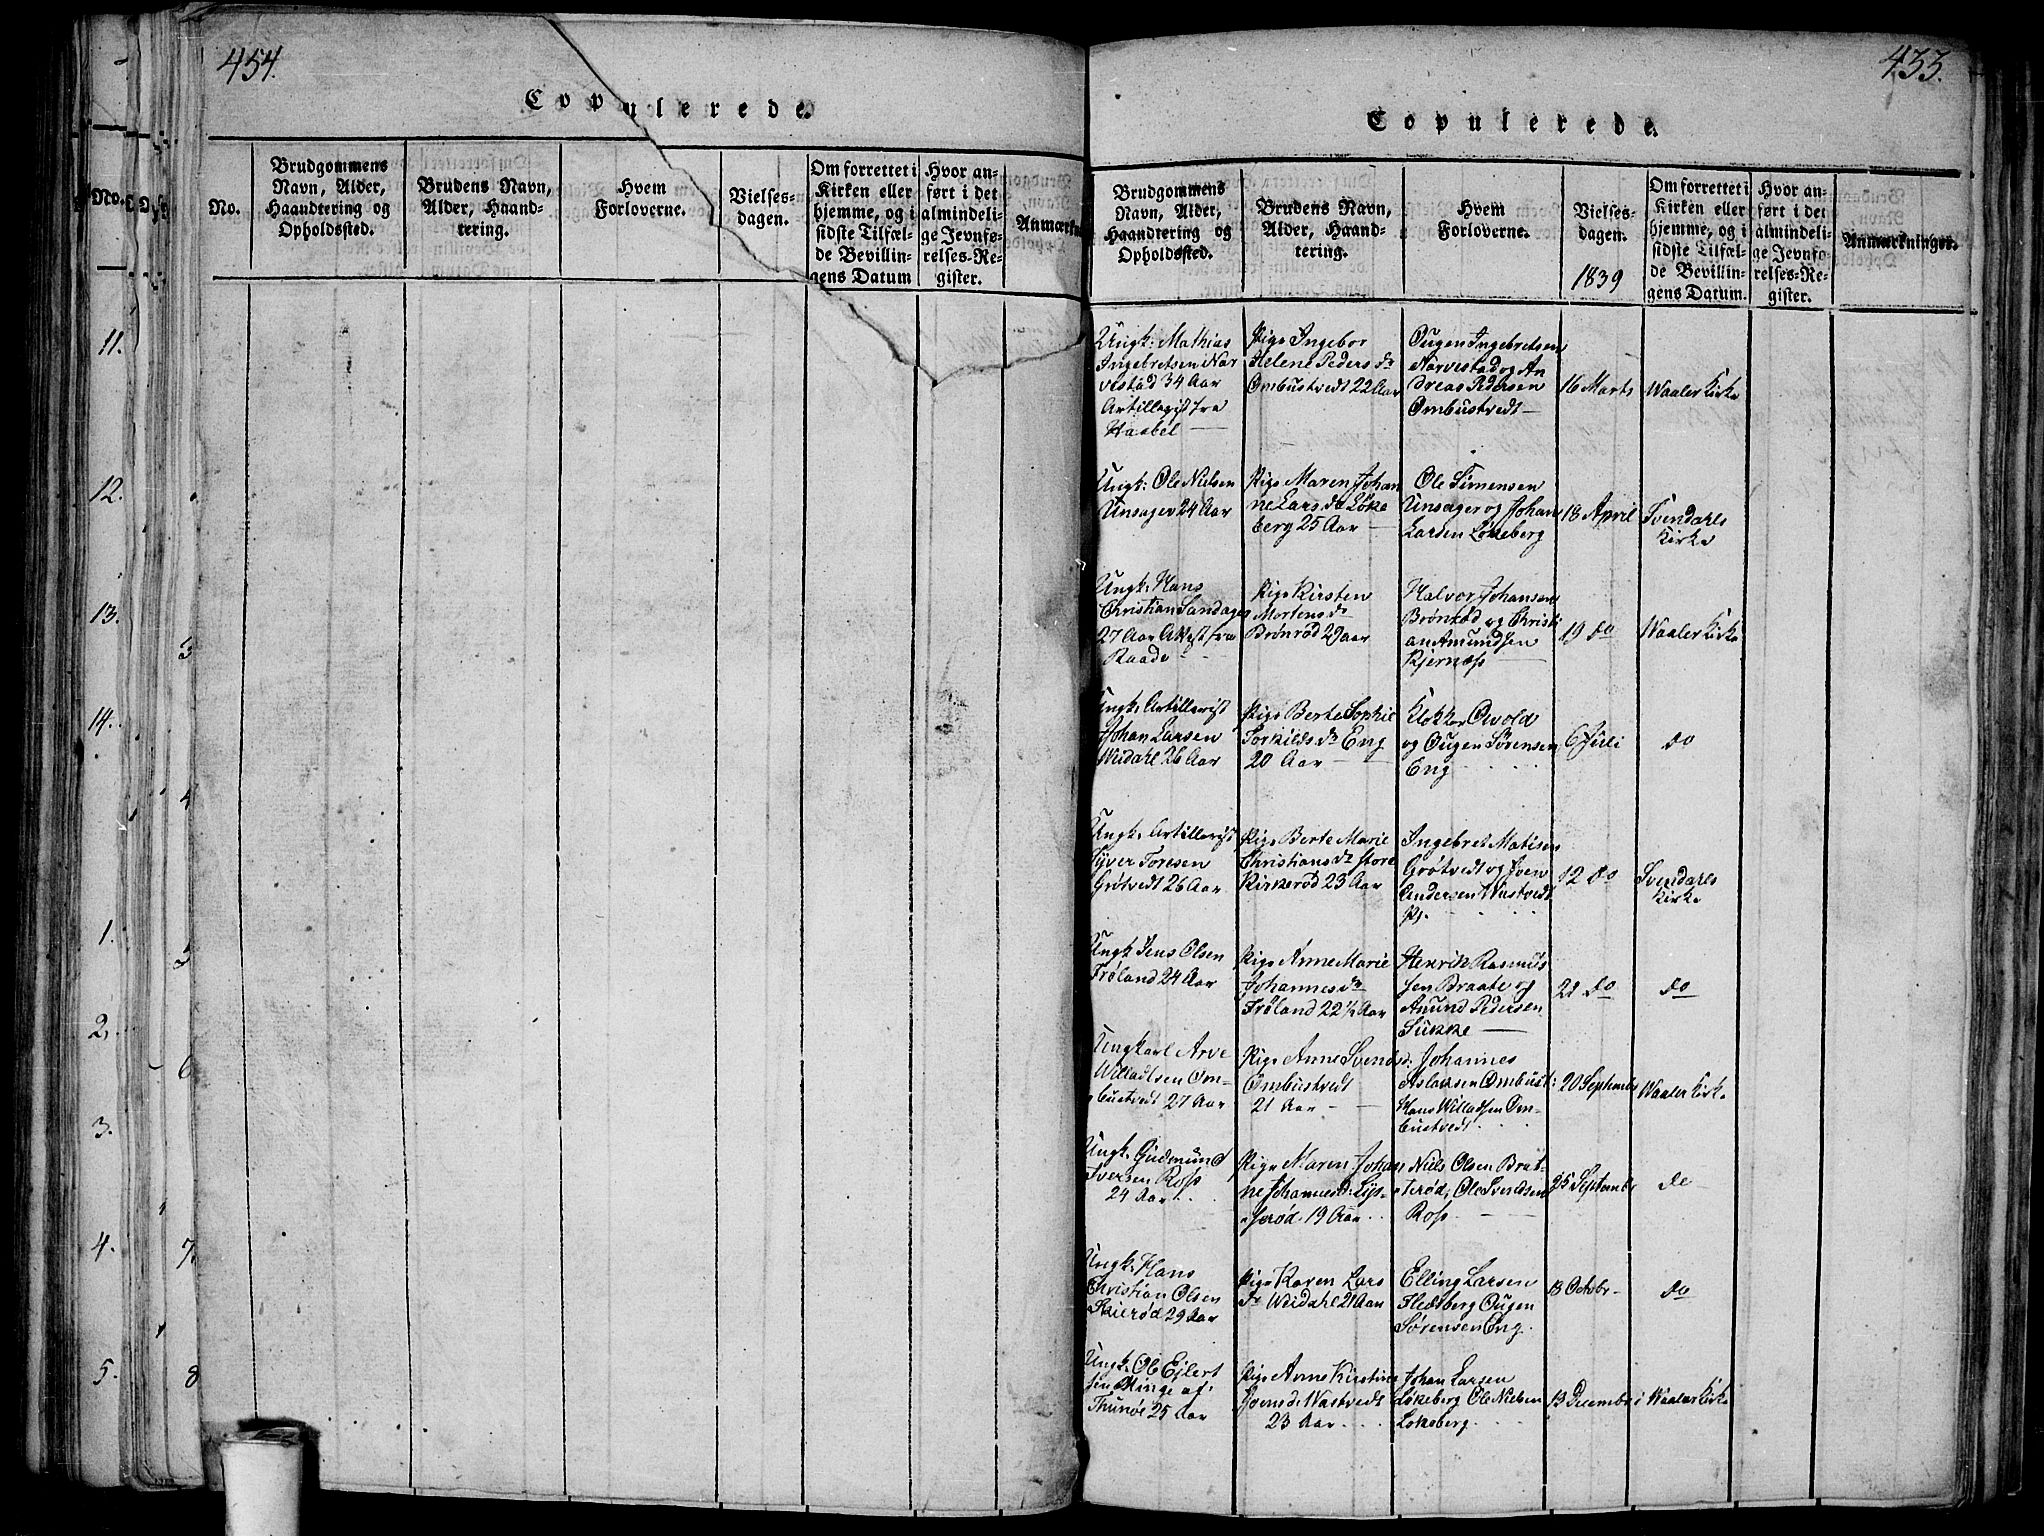 454.
Copulerede.
No.
Brudgommens
Navn, Alder,
Haandtering og
Opholdssted.
Brudens Navn,
Alder, Haand-
tering.
Hvem
Forloverne.
Vielses-
dagen.
Om forrettet i
Kirken eller
hjemme, og i
sidste Tilfæl-
de Bevillin-
gens Datum
Hvor an-
ført i det
almindeli-
ge Jevnfø-
relses-Re-
gister.
No.
11.
12.
13.
14.
1.
2.
3.
4.
5.
3
4
5
6
7.
8
433.
Copulerede.
Brudgommens
Navn, Alder,
Haandtering og
Opholdssted.
Brudens Navn,
Alder, Haand-
tering.
Hvem
Forloverne.
Vielses-
dagen.
1839
Om forrettet i
Kirken eller
hjemme, og i
sidste Tilfæl-
de Bevillin-
gens Datum.
Hvor an-
ført i det
almindeli-
ge Jevnfø-
relses-Re-
gister.
Anmærkninger.
Ungk: Mathias
Ingebretsen Nar
vestad 34 Aar
Artillerist fra
Haabel
Pige Ingebor
Helene Peders dr
Ombustvedt 22 Aar
Ougen Ingebretsen
Narvestad og An
dreas Pedersen
Ombustvedt
16 Marts
Waaler Kirke
Ungk: Ole Nielsen
Unsager 24 Aar
Pige Maren Johan
ne Lars dr Løke
berg 25 Aar
Ole Simensen
Unsager og Johan
Larsen Løkeberg
18 April
Svendals
Kirke
Ungk: Hans
Christian Sandager
27 Aar Attest fra
Raade
Pige Kirsten
Mortens dr
Brønrød 29 aar
Halvor Johansen
Brønrød og Christi
an Amundsen
Kjernæss
19 do
Waaler Kirke
Ungk: Artillerist
Johan Larsen
Weidahl 26 Aar
Pige Berte Sophie
Torkilds dr Eng
20 Aar
Klokker Owold
og Ougen Sørensen
Eng
6 Juli
do
Ungk. Artillerist
Syver Toresen
Grøtvedt 26 Aar
Pige Berte Marie
Christians dr Store
Kirkerød 23 Aar
Ingebret Matisen
Grøtvedt og Iven
Andersen Wastvedt
12 do
Svendals
Kirke
Ungk Jens Olsen
Frøland 24 Aar
Pige Anne Marie
Johannes dr
Frøland 22 ½ Aar
Henrik Rasmus
sen Braate og
Amund Pedersen
Sukke
22 do
do
Ungkarl Arve
Willadsen Om-
bustvedt 27 Aar
Pige Anne Svends d:
Ombustvedt
21 Aar
Johannes
Aslaksen Ombust:
Hans Willadsen Om-
bustvedt
20 September
Waaler Kirke
Ungk. Gudmund
Iversen Ross
24 Aar
Pige Maren Johan
ne Johannes d: Lys-
Aar
Niels Olsen Brat-
terød, Ole Svendsen
Ross
25 September
do
Ungk. Hans
Christian Olsen
Skierød 29 Aar
Pige Karen Lars
dr Weidahl 21 Aar
Elling Larsen
Ougen
Sørensen Eng.
13 Octobr
do
Ungk. Ole Ejlert
sen Minge af
Thunøe 25 Aar
Pige Anne Kirstine
Ivens d. Wastvedt
23 Aar
Johan Larsen
Løkeberg Ole Nielsen
Løkeberg.
13 December
Waaler Kirke